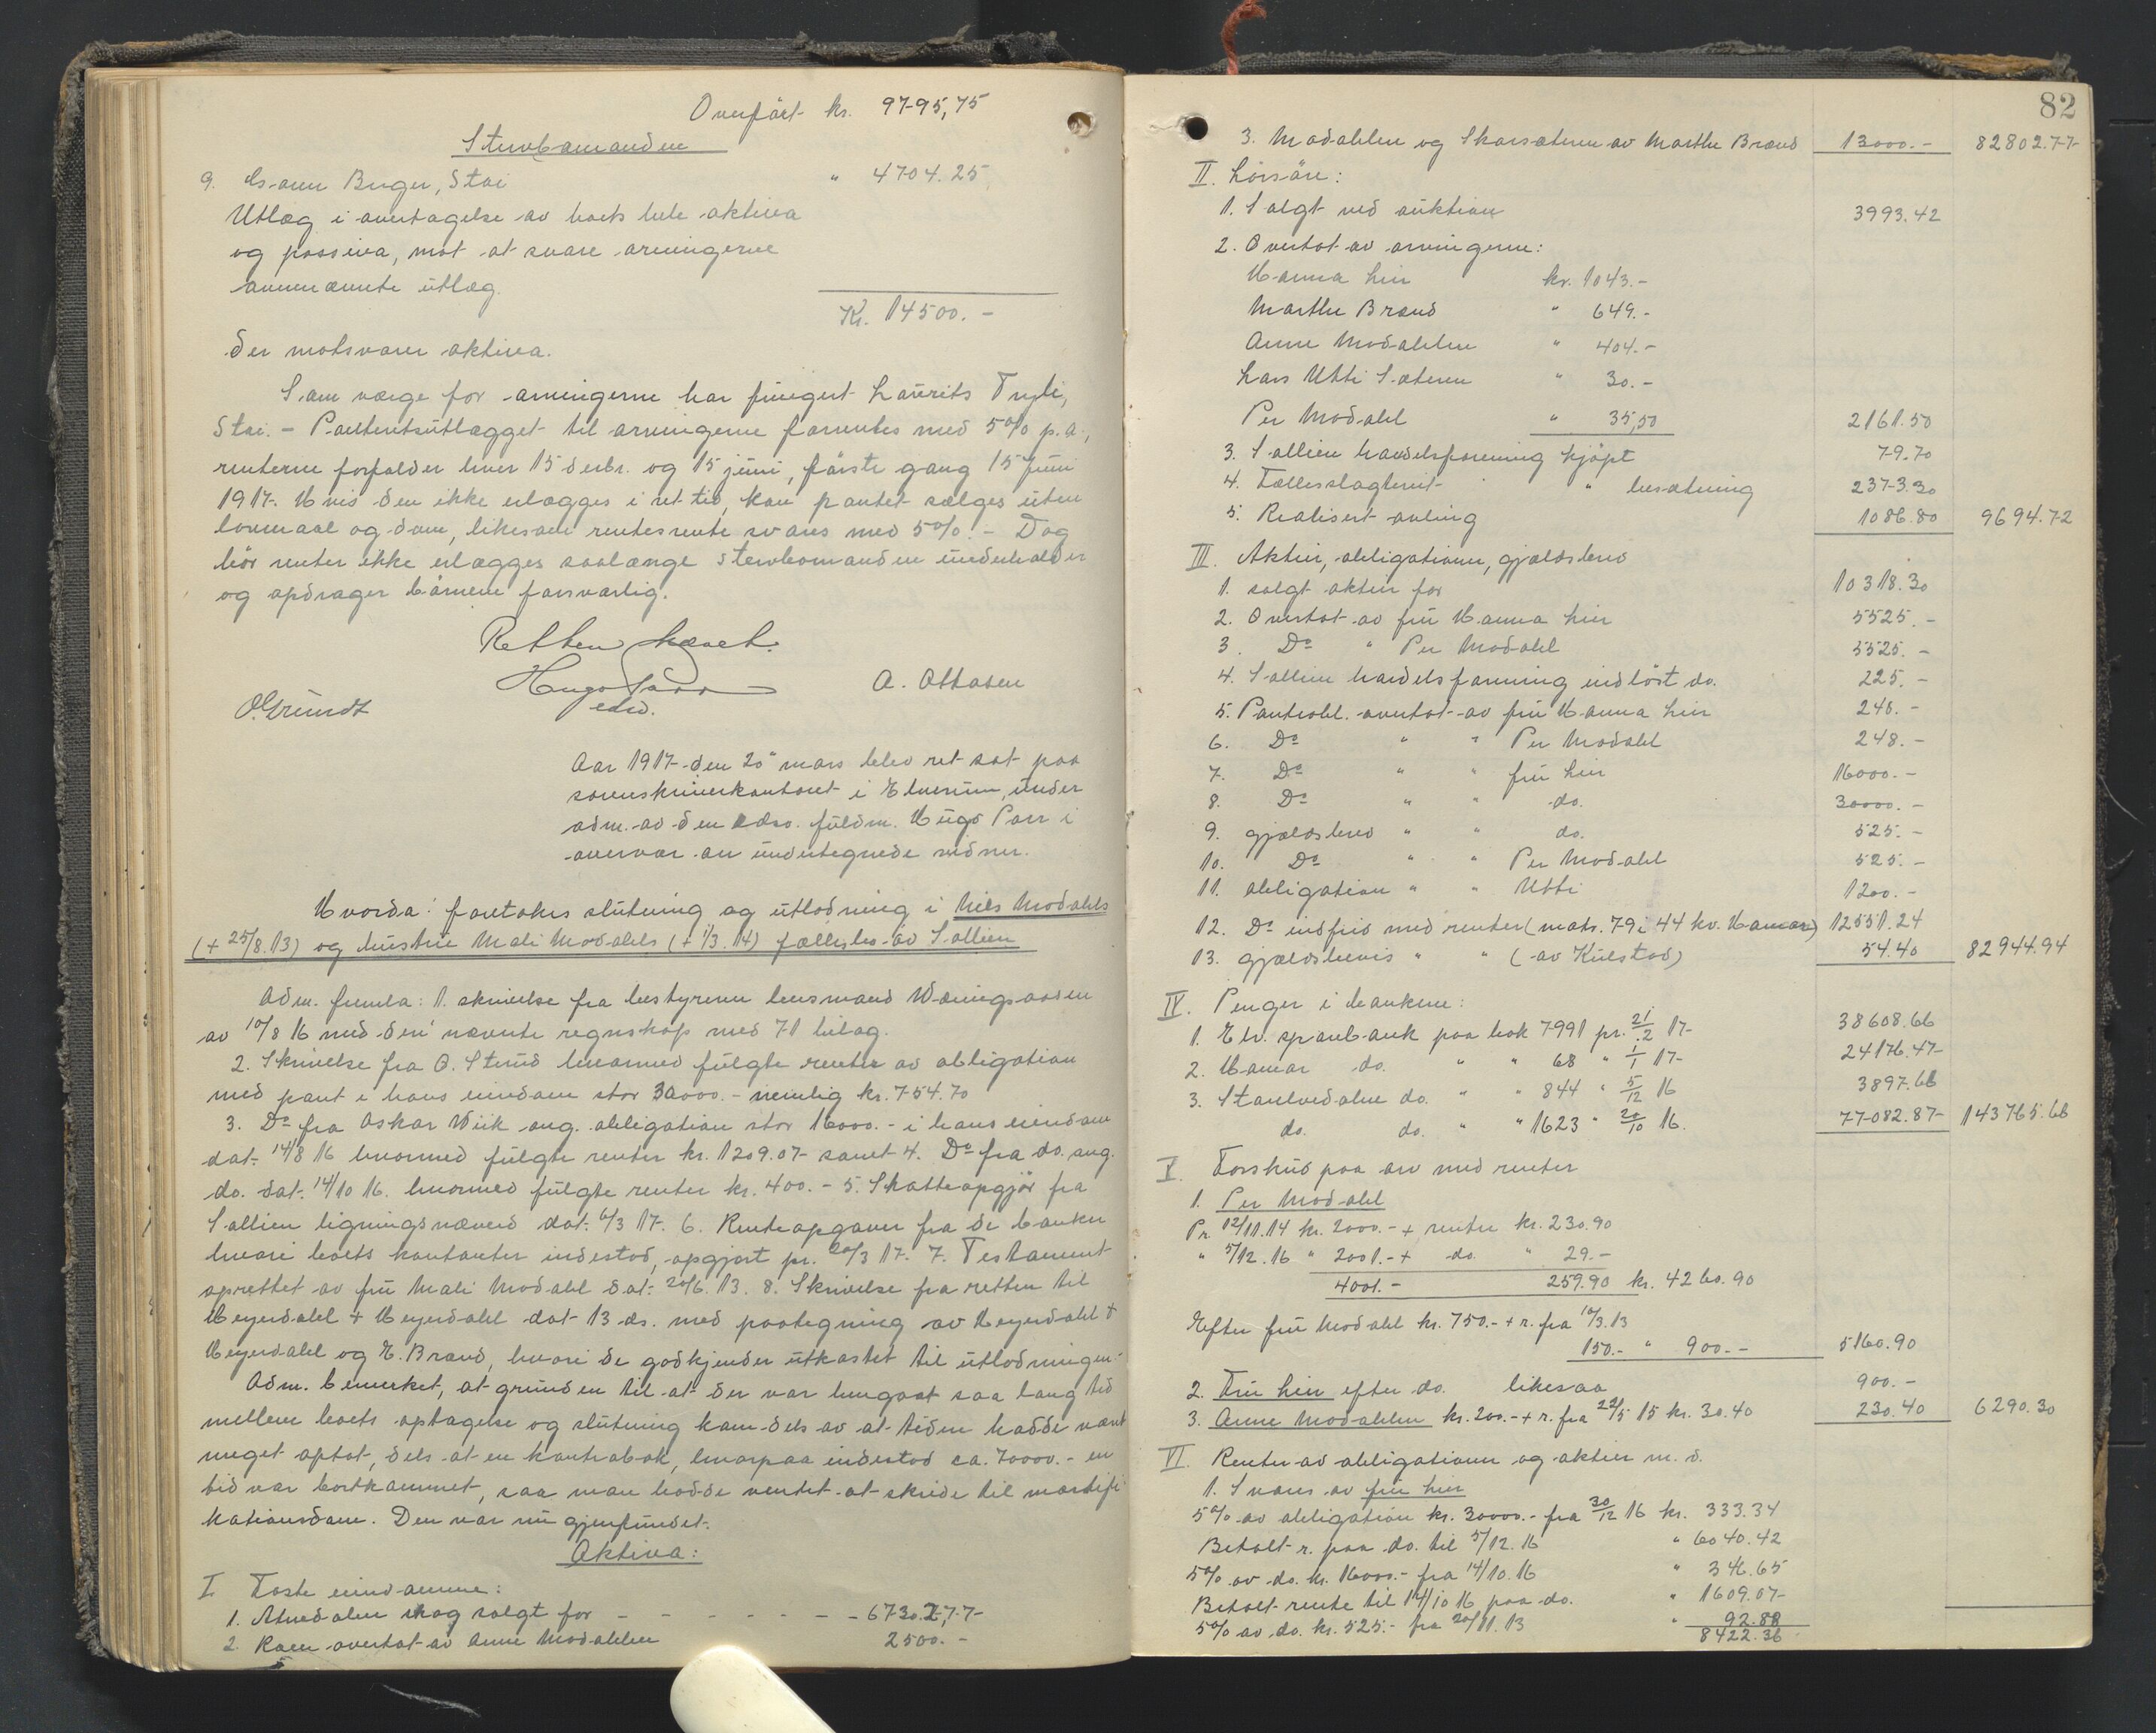 Overført kr. 9795,75
Stervbomanden
9. Esaren Berger, Stai " 4704.25
Utlæg i overtagelse av boets hele aktiva
og passiva, mot at svare arvingerne
ovennævnte utlæg.
Kr. 14500.-
der motsvarer aktiva.
Som verge for arvingerne har fungert Laurits Tryli,
Stai. - Panteretsutlægget til arvingerne forrentes med 5% p.a.,
renterne forfalder hver 15 decbr. og 15 juni, første gang 15 juni
1917. Hvis den ikke erlægges i ret tid, kan pantet sælges uten
lovmaal og dom, likesom rentesrente svares med 5%. - Dog
bør renter ikke erlægges saalænge stervbomanden underholder
og opdrager børnene forsvarlig.
Retten hævet.
Hugo Parr
edsv.
A. Ottosen
O. Grundt
Aar 1917 den 20de mars blev ret sat paa
sorenskriverkontoret i Elverum, under
adm. av den edsv. fuldm. Hugo Parr i
overvær av undertegnede vidner.
Hvorda: foretokes slutning og utlodning i Nils Modahls
(+ 25/8.13) og hustru Mali Modahls (+ 1/3.14) fællesbo av Sollien
Adm. fremla: 1. skrivelse fra bestyreren lensmand Wæringsaasen
av 10/8 16 med deri nævnte regnskap med 71 bilag.
2. Skrivelse fra O. Strud hvormed fulgte renter av obligation
med pant i hans eiendom stor 30000.- nemlig kr. 754.70
3. Do fra Oskar Wiik ang. obligation stor 16000.- i hans eiendom
dat. 14/8 16 hvormed fulgte renter kr. 1209.07 samt 4. Do fra do. ang.
do. dat. 14/10 16. hvormed fulgte renter kr. 400.- 5. Skatteopgjør fra
Sollien ligningsnævnd dat. 6/3 17. 6. Renteopgaver fra de banker
hvori boets kontanter indestod, opgjort pr. 20/3 17. 7. Testament
oprettet av fru Mali Modahl dat. 20/6.13. 8. Skrivelse fra retten til
Heyerdahl + Heyerdahl dat. 13 ds. med paategning av Heyerdahl +
Heyerdahl og E. Brænd, hvori de godkjender utkastet til utlodningen.
Adm. bemerket, at grunden til at der var hengaat saa lang tid
mellem boets optagelse og slutning kom dels av at tiden hadde været
meget optat, dels at en kontrabok, hvorpaa indestod ca. 70000.- en
tid var bortkommet, saa man hadde ventet at skride til mortifi-
kationsdom. Den var nu gjenfundet.
Aktiva:
I Faste eiendomme:
1. Atnedalen skog solgt for - - - - - - - 67302.77
2. Roen overtat av Anne Modahlen 2500.-
82
3. Modahlen og Skarsæteren av Marthe Brænd 13000.- 82802.77
II. Løsøre:
1. Solgt ved auktion 3993.42
2. Overtat av arvingerne:
Hanna Lien kr. 1043.-
Marthe Brænd " 649.-
Anne Modahlen " 404.-
Lars Utti Sæteren " 30.-
Per Modahl " 35,50 2161.50
3. Sollien handelsforening kjøpt 79.70
4. Fællesslagteriet " besætning 2373.30
5. Realisert avling 1086.80 9694.72
III. Aktier, obligationer, gjældsbrev
1. solgt aktier for 10318.30
2. Overtat av fru Hanna Lien 5525.-
3. Do " Per Modahl 5525.-
4. Sollien handelsforening indløst do. 225.-
5. Panteobl. overtat av fru Hanna Lien 248.-
6. Do " " Per Modahl 248.-
7. Do " " fru Lien 16000.-
8. Do " " do. 30000.-
9. gjældsbrev " " do. 525.-
10. Do " " Per Modahl 525.-
11. obligation " " Utti 1200.-
12. Do indfrid med renter (matr. 79 i 44 kv. Hamar) 12551.24
13. gjældsbevis " " (av Kulstad) 54.40 82944.94
IV. Penger i bankene:
1. Elv. sparebank paa bok 7991 pr. 21/2 17 38608.66
2. Hamar do. " " 68 " 1/1 17 24176.47
3. Storelvedalen do. " " 844 " 5/12 16 3897.66
do. do. " " 1623 " 20/10 16. 77082.87 143765.66
V. Forskud paa arv med renter
1. Per Modahl
Pr. 12/11.14 kr. 2000.- + renter kr. 230.90
" 5/12.16 " 2001.- + do. " 29.-
4001.- 259.90 kr. 4260.90
Efter fru Modahl kr. 750.- + r. fra 10/3.13
150.- " 900.- 5160.90
2. Fru Lien efter do. likesaa 900.-
3. Anne Modahlen kr. 200.- + r. fra 22/5 15 kr. 30.40 230.40 6290.30
VI. Renter av obligationer og aktier m.v.
1. Svares av fru Lien
5% av obligation kr. 30000.- fra 30/12 16 kr. 333.34
Betalt r. paa do. til 5/12.16 " 6040.42
5% av do. kr. 16000.- fra 14/10.16 " 346.65
Betalt rente til 14/10 16 paa do. " 1609.07
5% av do. kr. 525.- fra 20/11.13 " 92.88
8422.36